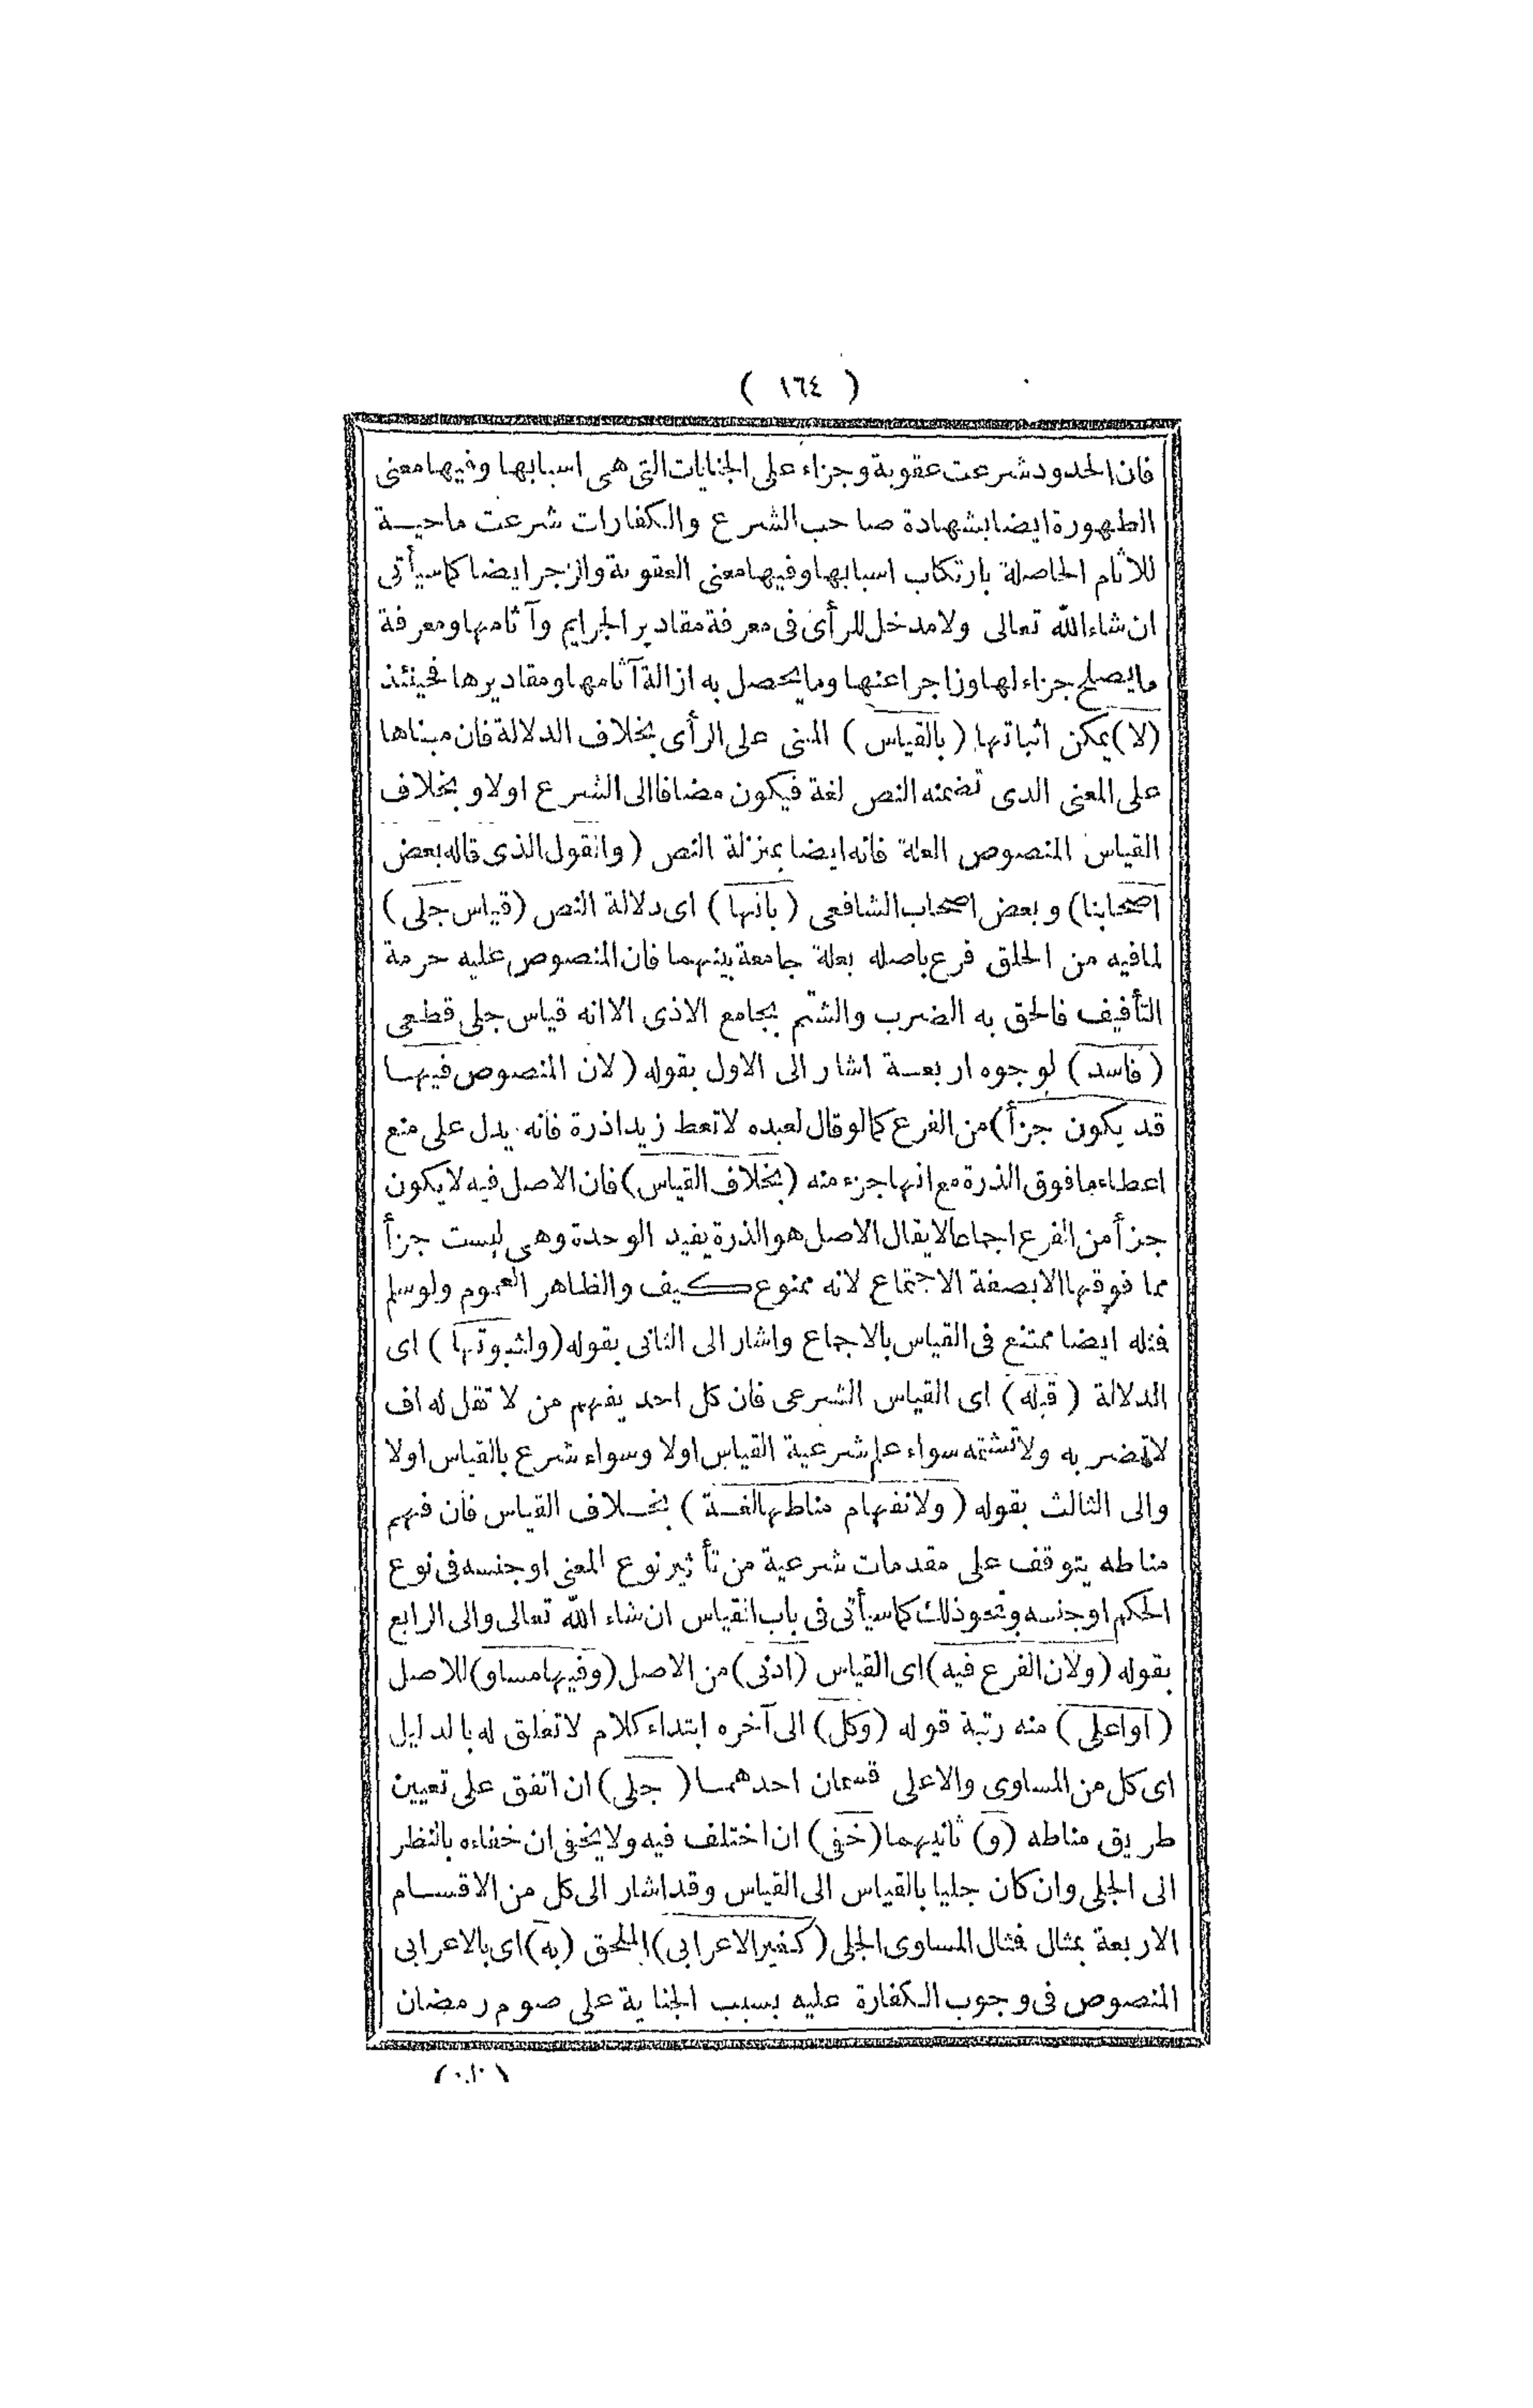 ( ١٦٤ )
فان الحدود شرعت عقوبة وجزاء على الجنايات التى هى اسبابها وفيها معنى
الطهورة ايضا بشهادة صاحب الشرع والكفارات شرعت ماحية
للاثام الحاصلة بارتكاب اسبابها وفيها معنى العقوبة والزجر ايضا كما سيأتى
ان شاء الله تعالى ولا مدخل للرأى فى معرفة مقادير الجرايم وآثامها ومعرفة
مايصلح جزاء لها وزاجرا عنها ومايحصل به ازالة آثامها ومقاديرها فحينئذ
(لا) يمكن اثباتها (بالقياس) المبنى على الرأى بخلاف الدلالة فان مبناها
على المعنى الذى تضمنه النص لغة فيكون مضافا الى الشرع اولا وبخلاف
القياس المنصوص العلة فانه ايضا بمنزلة النص (والقول الذى قاله بعض
اصحابنا) وبعض اصحاب الشافعى (بانها) اى دلالة النص (قياس جلى)
لمافيه من الحلق فرع باصله بعلة جامعة بينهما فان المنصوص عليه حرمة
التأفيف فالحق به الضرب والشتم بجامع الاذى الا انه قياس جلى قطعى
(فاسد) لوجوه اربعة اشار الى الاول بقوله (لان المنصوص فيها
قد يكون جزأ) من الفرع كمالو قال لعبده لاتعط زيدا ذرة فانه يدل على منع
اعطاء مافوق الذرة مع انها جزء منه (بخلاف القياس) فان الاصل فيه لايكون
جزأ من الفرع اجماعا لايقال الاصل هو الذرة يفيد الوحدة وهى ليست جزأ
مما فوقها الا بصفة الاجتماع لانه ممنوع كيف والظاهر العموم ولو سلم
فمثله ايضا ممتنع فى القياس بالاجماع واشار الى الثانى بقوله (ولثبوتها) اى
الدلالة (قبله) اى القياس الشرعى فان كل احد يفهم من لا تقل له اف
لاتضربه ولاتشتمه سواء علم شرعية القياس اولا وسواء شرع بالقياس اولا
والى الثالث بقوله (ولانفهام مناطها لغة) بخلاف القياس فان فهم
مناطه يتوقف على مقدمات شرعية من تأثير نوع المعنى او جنسه فى نوع
الحكم او جنسه ونحو ذلك كماسيأتى فى باب القياس ان شاء الله تعالى والى الرابع
بقوله (ولان الفرع فيه) اى القياس (ادنى) من الاصل (وفيها مساو) للاصل
(او اعلى) منه رتبة قوله (وكل) الى آخره ابتداء كلام لاتعلق له بالدليل
اى كل من المساوى والاعلى قسمان احدهما (جلى) ان اتفق على تعيين
طريق مناطه (و) ثانيهما (خفى) ان اختلف فيه ولايخفى ان خفاءه بالنظر
الى الجلى وان كان جليا بالقياس الى القياس وقد اشار الى كل من الاقسام
الاربعة بمثال فمثال المساوى الجلى (كغير الاعرابى) الملحق (به) اى بالاعرابى
المنصوص فى وجوب الكفارة عليه بسبب الجناية على صوم رمضان